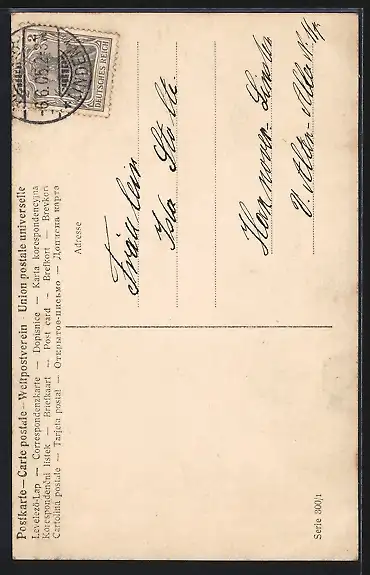 Postkarte — Carte postale — Weltpostverein - Union postale universelle
Levelező-Lap — Correspondenzkarte — Dopisnice — Karta korespondencyjna
Korespondenční lístek — Briefkaart — Post card — Brefkort — Brevkort
Cartolina postale — Tarjeta postal — Открытое-письмо — Дописна карта
2
DEUTSCHES REICH
LINDEN
-6.6.05.
Adresse
Fräulein
Hannover-Linden
Serie 300/1